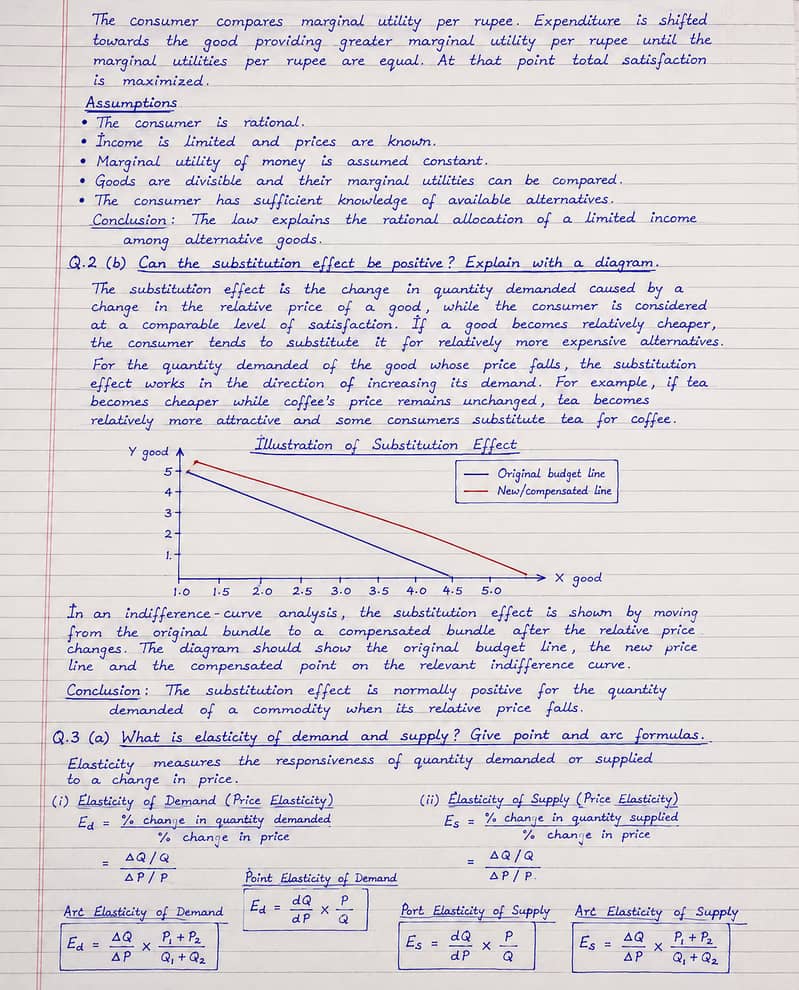 The consumer compares marginal utility per rupee. Expenditure is shifted
towards the good providing greater marginal utility per rupee until the
marginal utilities per rupee are equal. At that point total satisfaction
is maximized.
Assumptions
• The consumer is rational.
• Income is limited and prices are known.
• Marginal utility of money is assumed constant.
• Goods are divisible and their marginal utilities can be compared.
• The consumer has sufficient knowledge of available alternatives.
Conclusion: The law explains the rational allocation of a limited income
among alternative goods.
Q.2 (b) Can the substitution effect be positive? Explain with a diagram.
The substitution effect is the change in quantity demanded caused by a
change in the relative price of a good, while the consumer is considered
at a comparable level of satisfaction. If a good becomes relatively cheaper,
the consumer tends to substitute it for relatively more expensive alternatives.
For the quantity demanded of the good whose price falls, the substitution
effect works in the direction of increasing its demand. For example, if tea
becomes cheaper while coffee's price remains unchanged, tea becomes
relatively more attractive and some consumers substitute tea for coffee.
Illustration of Substitution Effect
Y good
5
4
3
2
1.
Original budget line
New/compensated line
X good
1.0 1.5 2.0 2.5 3.0 3.5 4.0 4.5 5.0
In an indifference-curve analysis, the substitution effect is shown by moving
from the original bundle to a compensated bundle after the relative price
changes. The diagram should show the original budget line, the new price
line and the compensated point on the relevant indifference curve.
Conclusion: The substitution effect is normally positive for the quantity
demanded of a commodity when its relative price falls.
Q.3 (a) What is elasticity of demand and supply? Give point and arc formulas.
Elasticity measures the responsiveness of quantity demanded or supplied
to a change in price.
(i) Elasticity of Demand (Price Elasticity)
Ed = % change in quantity demanded
% change in price
= ΔQ/Q
ΔP/P
(ii) Elasticity of Supply (Price Elasticity)
Es = % change in quantity supplied
% change in price
= ΔQ/Q
ΔP/P.
Point Elasticity of Demand
Ed = dQ/dP × P/Q
Arc Elasticity of Demand
Ed = ΔQ/ΔP × P₁+P₂/Q₁+Q₂
Port Elasticity of Supply
Es = dQ/dP × P/Q
Arc Elasticity of Supply
Es = ΔQ/ΔP × P₁+P₂/Q₁+Q₂